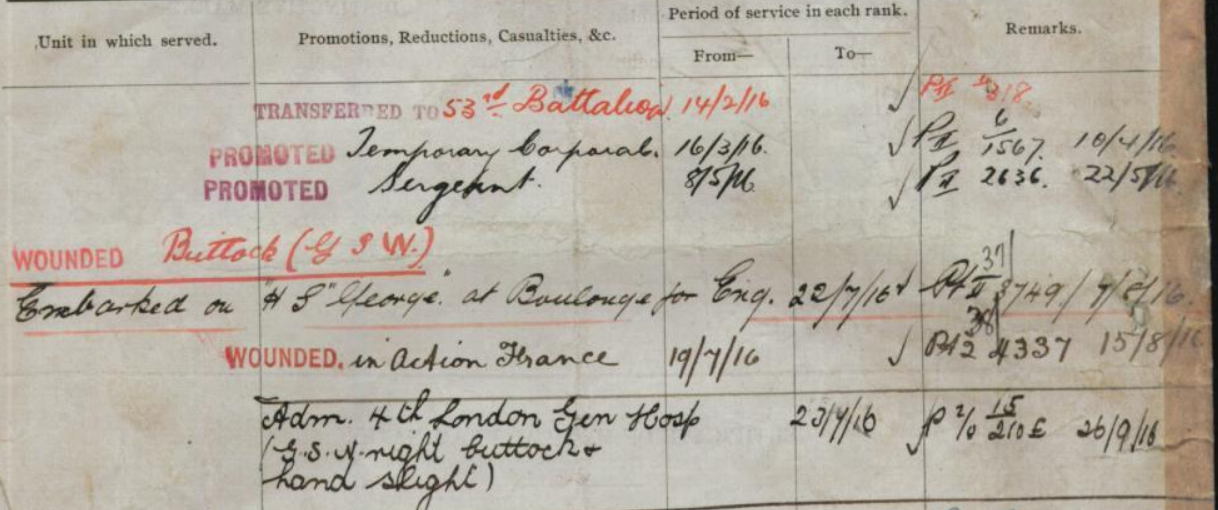 Unit in which served. Promotions, Reductions, Casualties, &c. Period of service in each rank. From— To— Remarks.
TRANSFERRED TO 53rd Battalion 14/2/16
PROMOTED Temporary Corporal. 16/3/16. PII 6/1567. 10/4/16
PROMOTED Sergeant. 8/5/16. PII 2636. 22/5/16
WOUNDED Buttock (G S W.)
Embarked on "H S" George" at Boulonge for Eng. 22/7/16 Pt II 37/3749/ 7/8/16.
WOUNDED. in action France 19/7/16 Pt 2 38/4337 15/8/16
Adm. 4th London Gen Hosp 23/7/16 15 26/9/16
(G.S.W. right buttock &
hand slight)